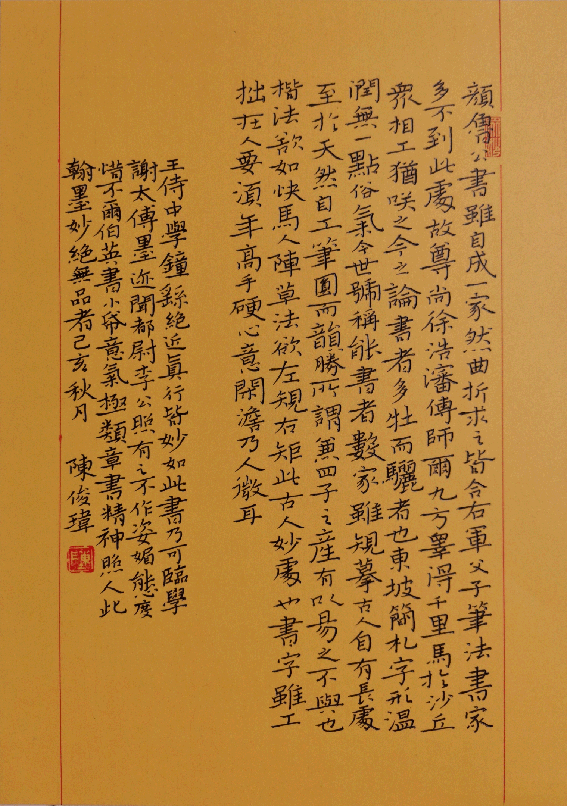 顏魯公書雖自成一家然曲折求之皆合右軍父子筆法書家
多不到此處故尊尚徐浩瀋傳師爾九方皋得千里馬於沙丘
眾相工猶咲之今之論書者多牡而驪者也東坡簡札字形溫
潤無一點俗氣今世號稱能書者數家雖規摹古人自有長處
至於天然自工筆圓而韻勝所謂兼四子之產有以易之不與也
楷法欲如快馬人陣草法欲左規右矩此古人妙處也書字雖工
拙在人要須年高手硬心意閑澹乃人微耳
王侍中學鐘繇絕近真行皆妙如此書乃可臨學
謝太傅墨迹聞都尉李公照有之不作姿媚態度
惜不爾伯英書小帋意氣極類章書精神照人此
翰墨妙絕無品者己亥秋月 陳俊瑋
陳